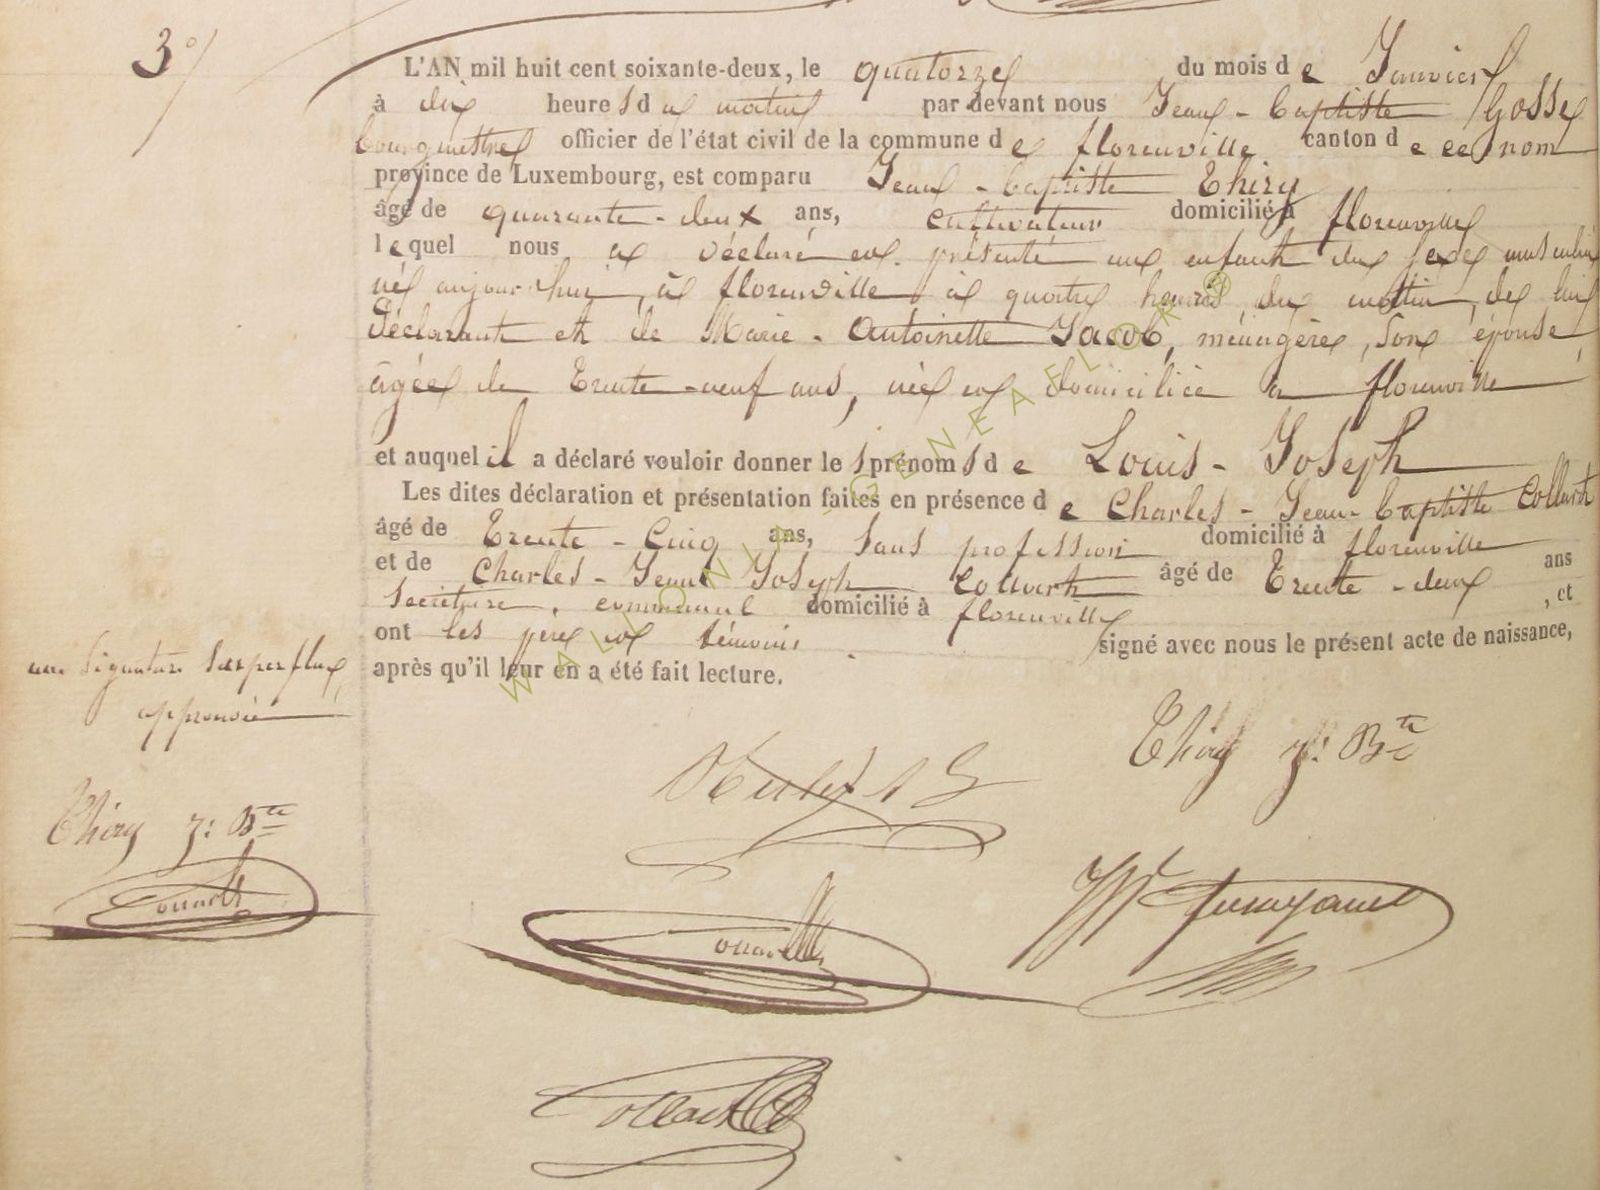 3°/
L'AN mil huit cent soixante-deux, le quatorze du mois de Janvier
à dix heures du matin par devant nous Jean-Baptiste Gosse
bourgmestre officier de l'état civil de la commune de florenville canton de ce nom
province de Luxembourg, est comparu Jean-baptiste Thiry
âgé de quarante-deux ans, cultivateur domicilié à florenville
lequel nous a déclaré et présenté un enfant du sexe masculin
né aujourd'hui, à florenville à quatre heures du matin, de lui
déclarant et de Marie-Antoinette Jacob, ménagère, son épouse,
âgée de trente-neuf ans, née et domiciliée à florenville
et auquel il a déclaré vouloir donner les prénoms de Louis-Joseph
Les dites déclaration et présentation faites en présence de Charles-Jean-baptiste Collarth
âgé de trente-cinq ans, sans profession domicilié à florenville
et de Charles-Jean Joseph Collarth âgé de trente-deux ans
secrétaire communal domicilié à florenville, et
ont les père et témoins signé avec nous le présent acte de naissance,
après qu'il leur en a été fait lecture.
une signature superflue
approuvée
Thiry J: Bte
Thiry J: Bte
WALLONIA-GENEAFLOR®